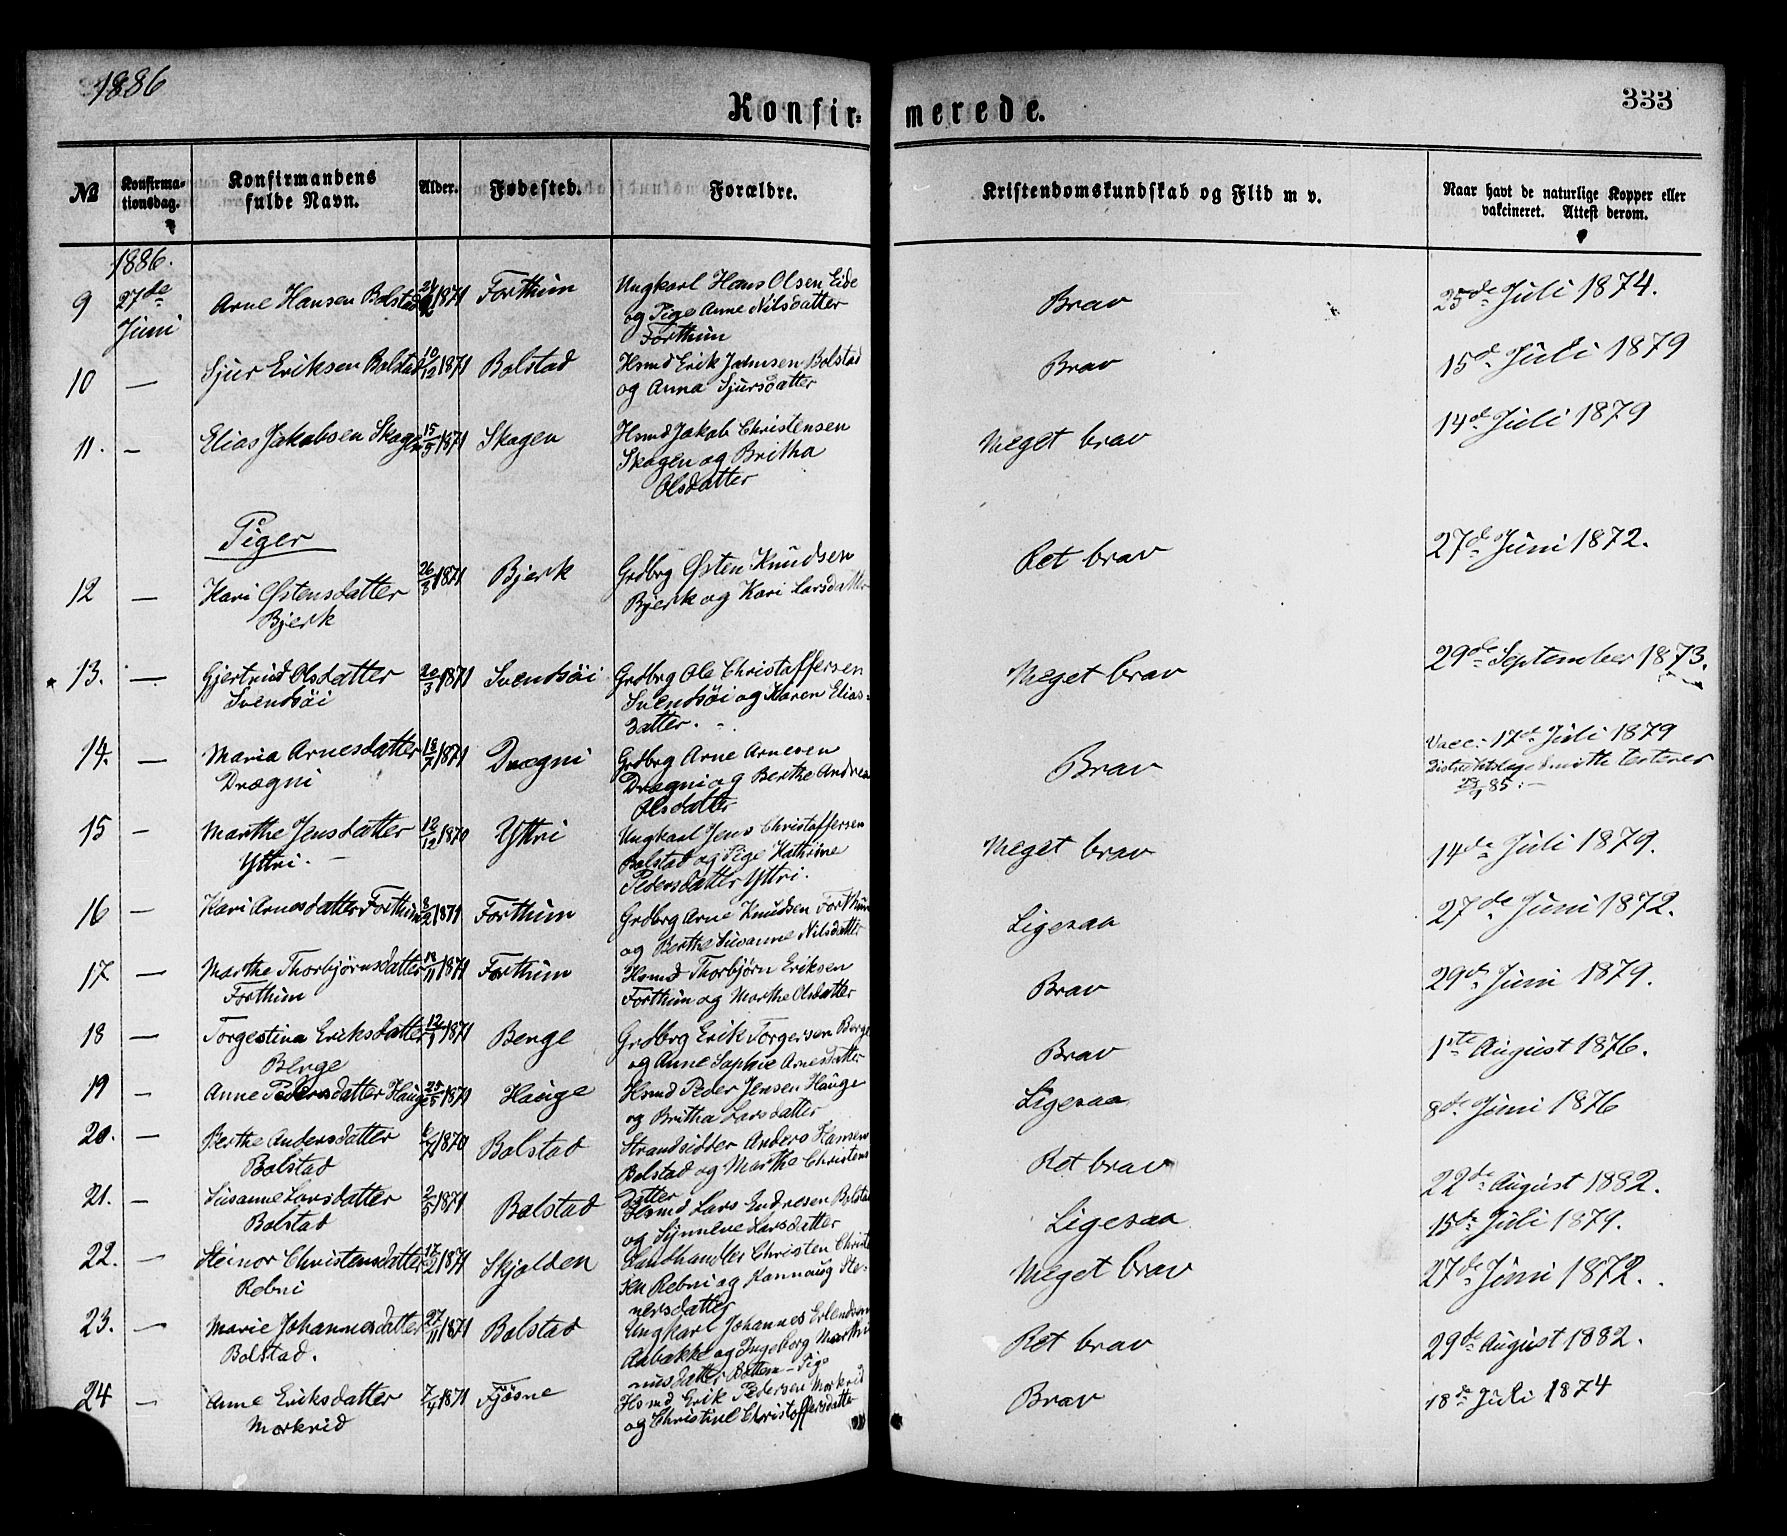 1886
Konfir= merede. 333
№ Konfirma-tionsdag. Konfirmandens fulde Navn. Alder. Fødested. Forældre. Kristendomskundskab og Flid m v. Naar havt de naturlige Kopper eller vakcineret. Attest derom.
1886.
9 27de Juni Arne Hansen Bolstad 1871 Forthun Ungkarl Hans Olsen Eide Brav 25de Juli 1874.
og Pige Anne Nilsdatter
Forthun
10 — Sjur Eriksen Bolstad 10/12 1871 Bolstad Hsmd Erik Johnsen Bolstad Brav 15de Juli 1879
og Anna Sjursdatter
11. — Elias Jakobsen Skagen 15/5 1871 Skagen Hsmd Jakob Christensen Meget brav 14de Juli 1879
Skagen og Britha
Olsdatter
Piger
12 — Kari Østensdatter 26/3 1871 Bjerk Grdbrg Østen Knudsen Ret brav 27de Juni 1872.
Bjerk Bjerk og Kari Larsdatter
13. — Gjertrud Olsdatter 20/3 1871 Svensøi Grdbrg Ole Christaffersen Meget brav 29de September 1873.
Svendsøi Svendsøi og Karen Elias-
datter.
14. — Maria Arnesdatter 18/7 1871 Drægni Grdbrg Arne Arnesen Brav Vacc. 17de Juli 1879
Drægni Drægni og Berthe Andrea Distriktslæge testerer
Olsdatter 85.
15 — Marthe Jensdatter 12/12 1870 Yttri Ungkarl Jens Christaffersen Meget brav 14de Juli 1879.
Yttri. — Bolstad og Pige Kathrine
Pedersdatter Yttri.
16 — Kari Arnesdatter Forthun 8/2 1871 Forthun Grdbrg Arne Knudsen Forthun Ligesaa 27de Juni 1872.
og Berthe Susanne Nilsdatter
17 — Marthe Thorbjørnsdatter 18/11 1871 Forthun Hsmd Thorbjørn Eriksen Brav 29de Juni 1879.
Forthun Forthun og Marthe Olsdatter
18 — Torgestina Eriksdatter 1871 Berge Grdbrg Erik Torgersen Berge Brav 1ste August 1876.
Berge og Anne Sophie Arnesdatter
19 — Anne Pedersdatter Hauge 25/5 1871 Hauge Hsmd Peder Jensen Hauge Ligesaa 8de Juni 1876
og Britha Larsdatter
20. — Berthe Andersdatter 1870 Bolstad Strandsidder Anders Hansen Ret brav 22de August 1882.
Bolstad Bolstad og Marthe Christens
datter
21. — Susanne Larsdatter 2/5 1871 Bolstad Hsmd Lars Endresen Bolstad Ligesaa 15de Juli 1879.
Bolstad og Synneve Larsdatter
22. — Steinor Christensdatter 17/2 1871 Skjolden Landhandler Christen Christen Meget brav 27de Juni 1872.
Rebni sen Rebni og Kannaug Ste-
nersdatter
23. — Marie Johannesdatter 27/11 1871 Bolstad Ungkarl Johannes Erlendsen Ret brav 29de August 1882.
Bolstad. Aabakke og Ingeborg Marthi
nusdatter Bottem — Pige
24 — Anne Eriksdatter 7/4 1871 Fjøsne Hsmd Erik Pedersen Morkrid Brav 18de Juli 1874
Morkrid og Christine Christoffersdatter